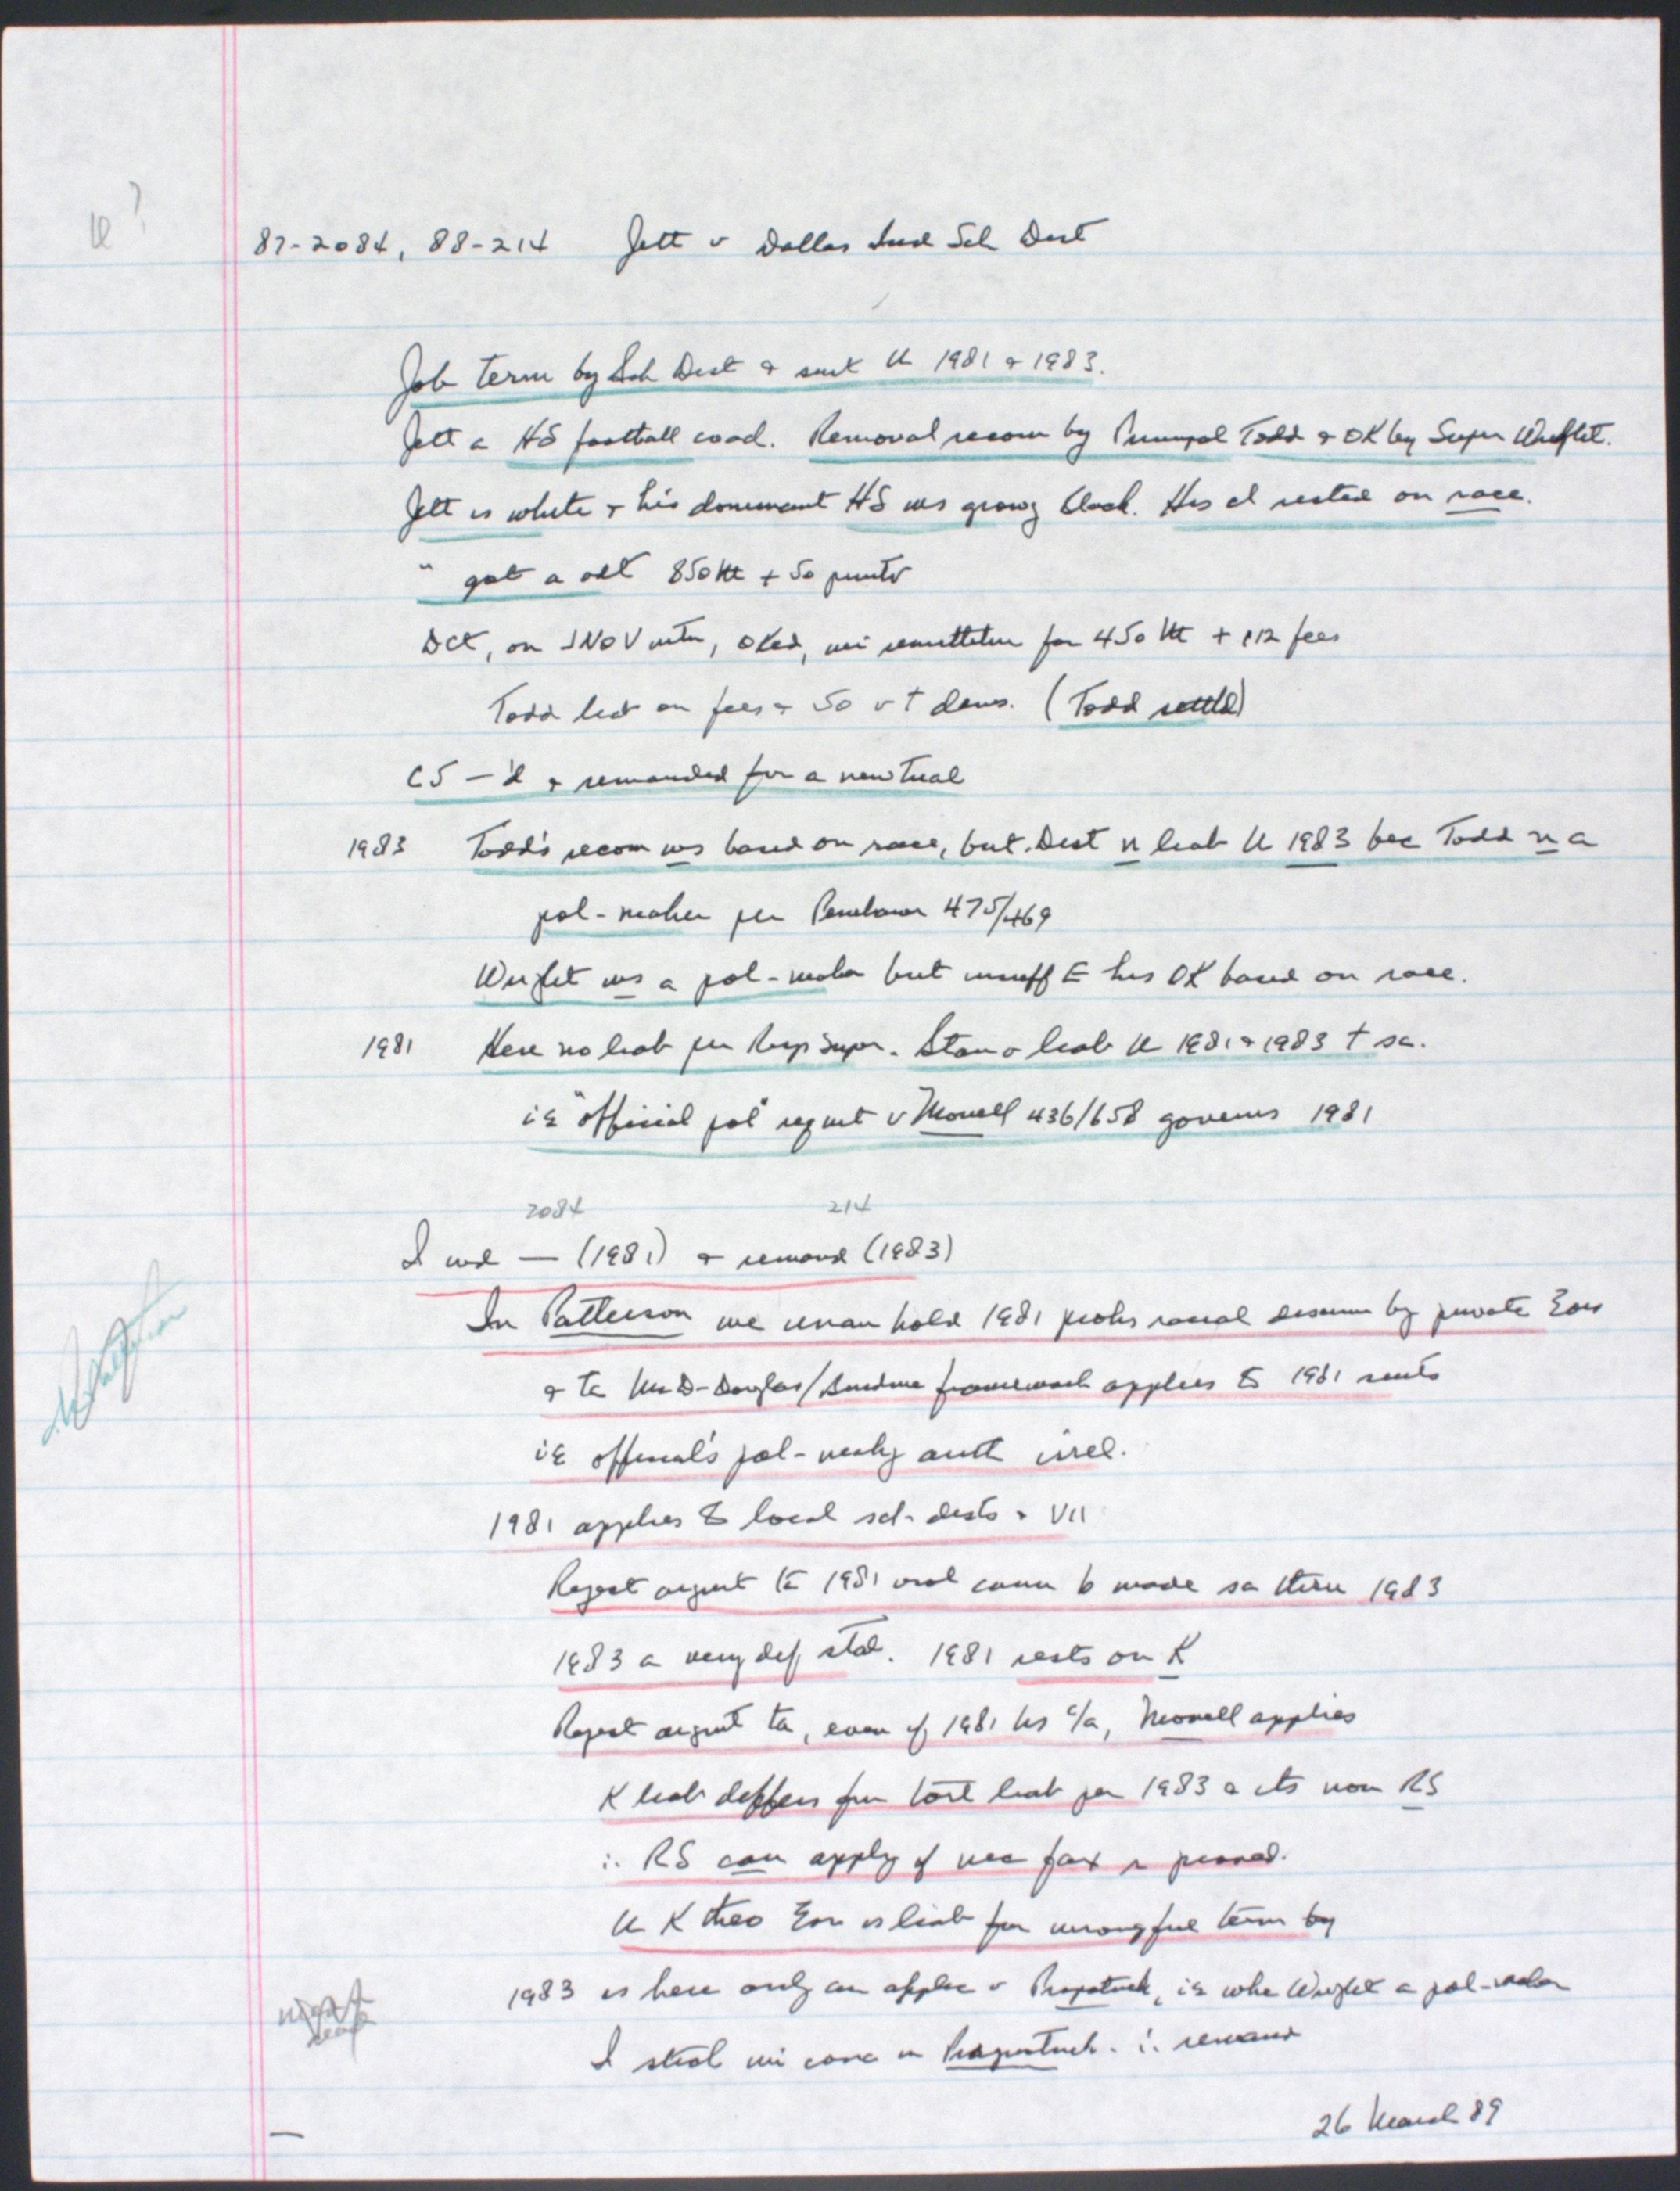 87-2084, 88-214 Jett v Dallas Ind Sch Dist
Job term by Sch Dist & suit U 1981 & 1983.
Jett a HS football coach. Removal recom by Principal Todd & OK by Super Wright.
Jett is white & his dominant HS ws growg black. His cl rested on race.
" got a vdt 850 M + 50 punitv
DCt, on JNOV mtn, OKed, wi remittitur for 450 M + 112 fees
Todd liab on fees & 50 v t dams. (Todd settld)
C5 — 'd & remanded for a new trial
1983 Todd's recom ws based on race, but Dist n liab U 1983 bec Todd n a
pol-maker per Pembaur 475/469
Wright ws a pol-maker but insuff E his OK based on race.
1981 Here no liab per Resp Super. Stan o liab U 1981 & 1983 t sa.
ie "official pol" reqmt v Monell 436/658 governs 1981
2084 214
I wd — (1981) & remand (1983)
In Patterson we unan hold 1981 prohs racial discrim by private Eors
& tt McD-Douglas/Burdine framework applies to 1981 suits
ie official's pol-makg auth irrel.
1981 applies to local sch dists & VII
Reject argmt tt 1981 viol cann b made sa thru 1983
1983 a very dif stat. 1981 rests on K
Reject argmt tt, even if 1981 hs c/a, Monell applies
K liab differs fm tort liab per 1983 & its non RS
∴ RS can apply if nec fax r proved.
U K theo Eor is liab for wrongful term by
1983 is here only an applic v Praprotnik, ie whe Wright a pol-maker
I stick wi conc in Praprotnik. ∴ remand
26 March 89